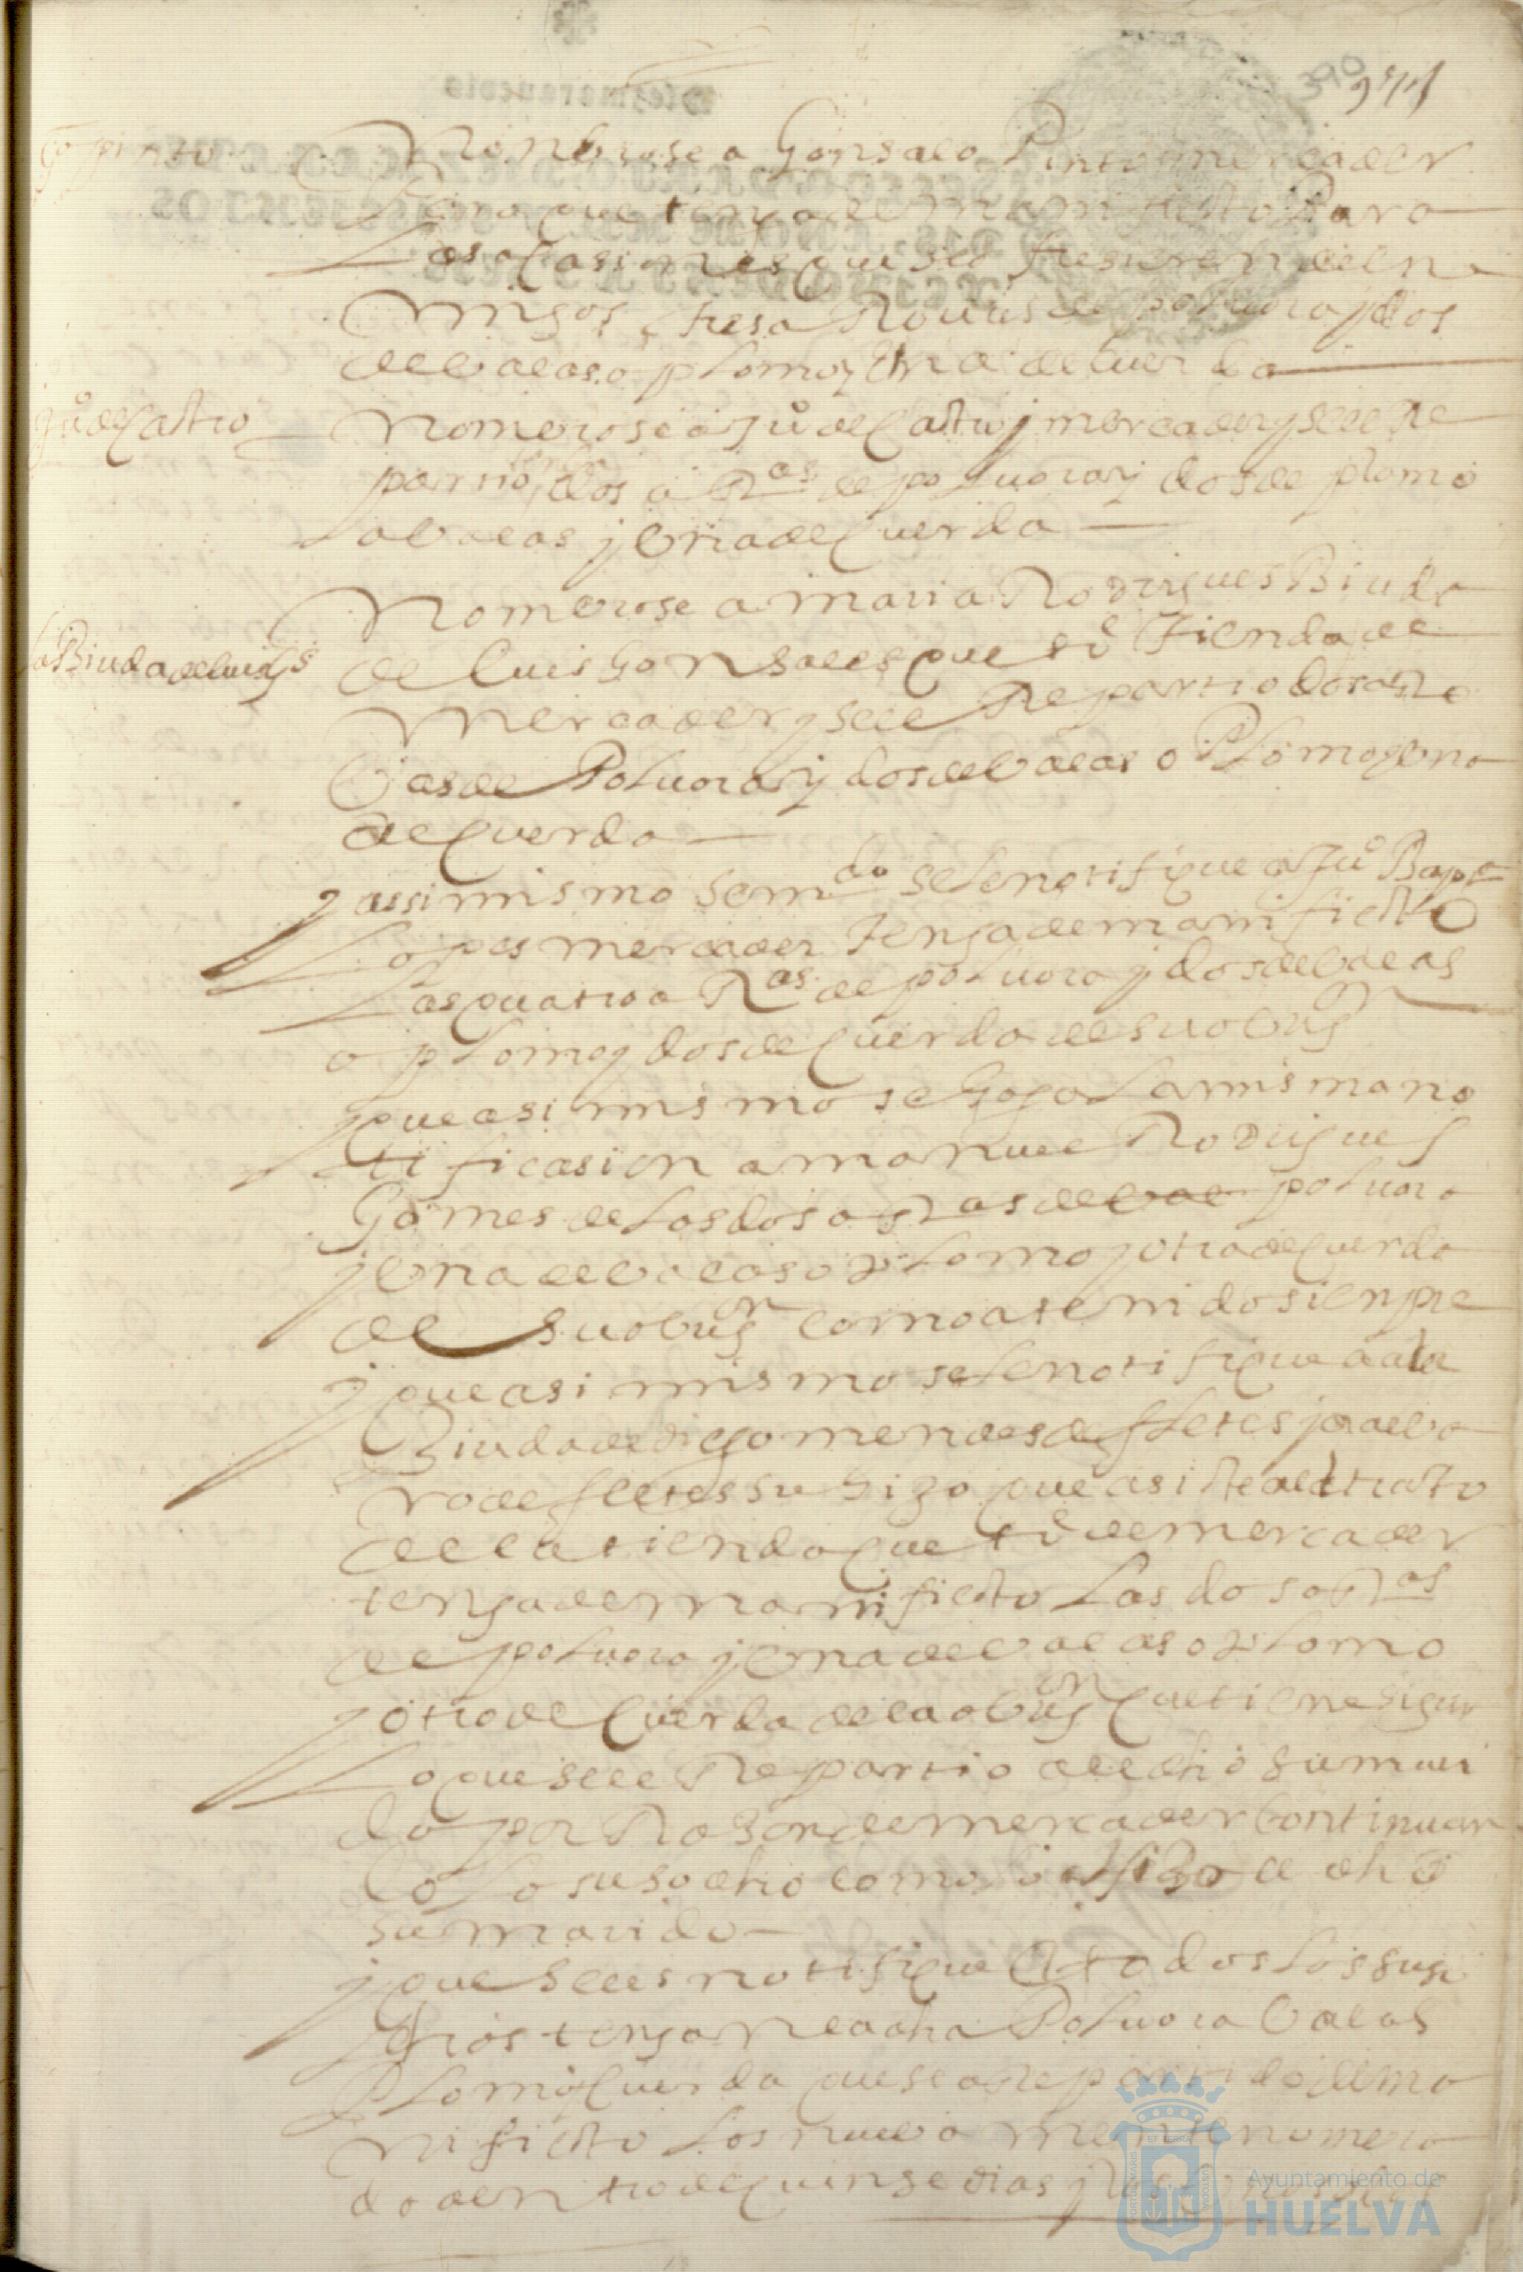 Go pinto
Nonbrose a Gonsalo Pinto mercader
Para que tenga de manifiesto Para
Las ocasiones que se ofresieren de ene
Migos tres a Rouas de poluora y dos
de balas o plomo y Una de cuerda
Juº de Castro
Nombrose a Juº de Castro mercader y se le Re
partio dos a Ras de poluora y dos de plomo
o balas y Vna de Cuerda
La Biuda de luis Gs
Nombrose a maria Rodrigues Biuda
de luis Gonsales que tiº Tienda de
Mercader y se le Repartio dos aRo
Vas de Poluora y dos de balas o Plomo y Vna
de Cuerda
y assi mismo se mdo se le notifique a Juº Bapta
Lopes mercader Tenga de manifiesto
Las quatro a Ras de poluora y dos de balas
o plomo y dos de Cuerda de su obligon
y que asi mismo se haga la misma no
tificasion a manuel Rodrigues
Gomes de Las dos a Ras de bal poluora
y Vna de balas o plomo y otra de Cuerda
de su obligon como a tenido sienpre
y que asi mismo se le notifique a la
Biuda de diego mendes de fletes y a albo
ro de fletes su hijo que asiste al trato
de la tienda que tiº de mercader
tenga de manifiesto Las dos a Ras
de poluora y Vna de balas o plomo
y otra de Cuerda de la obligon que tiene sigun
Lo que se le Repartio al dho su mari
do por Rason de mercader continuan
do Lo susodho como hijo de dho
su marido
y que se les notifique A todos Los suso
dhos tengan la dha Poluora balas
Plomo y Cuerda que se a Repartido de ma
nifiesto Los nuebamente nombra
do dentro de quinse dias y Los
Ayuntamiento de
HUELVA